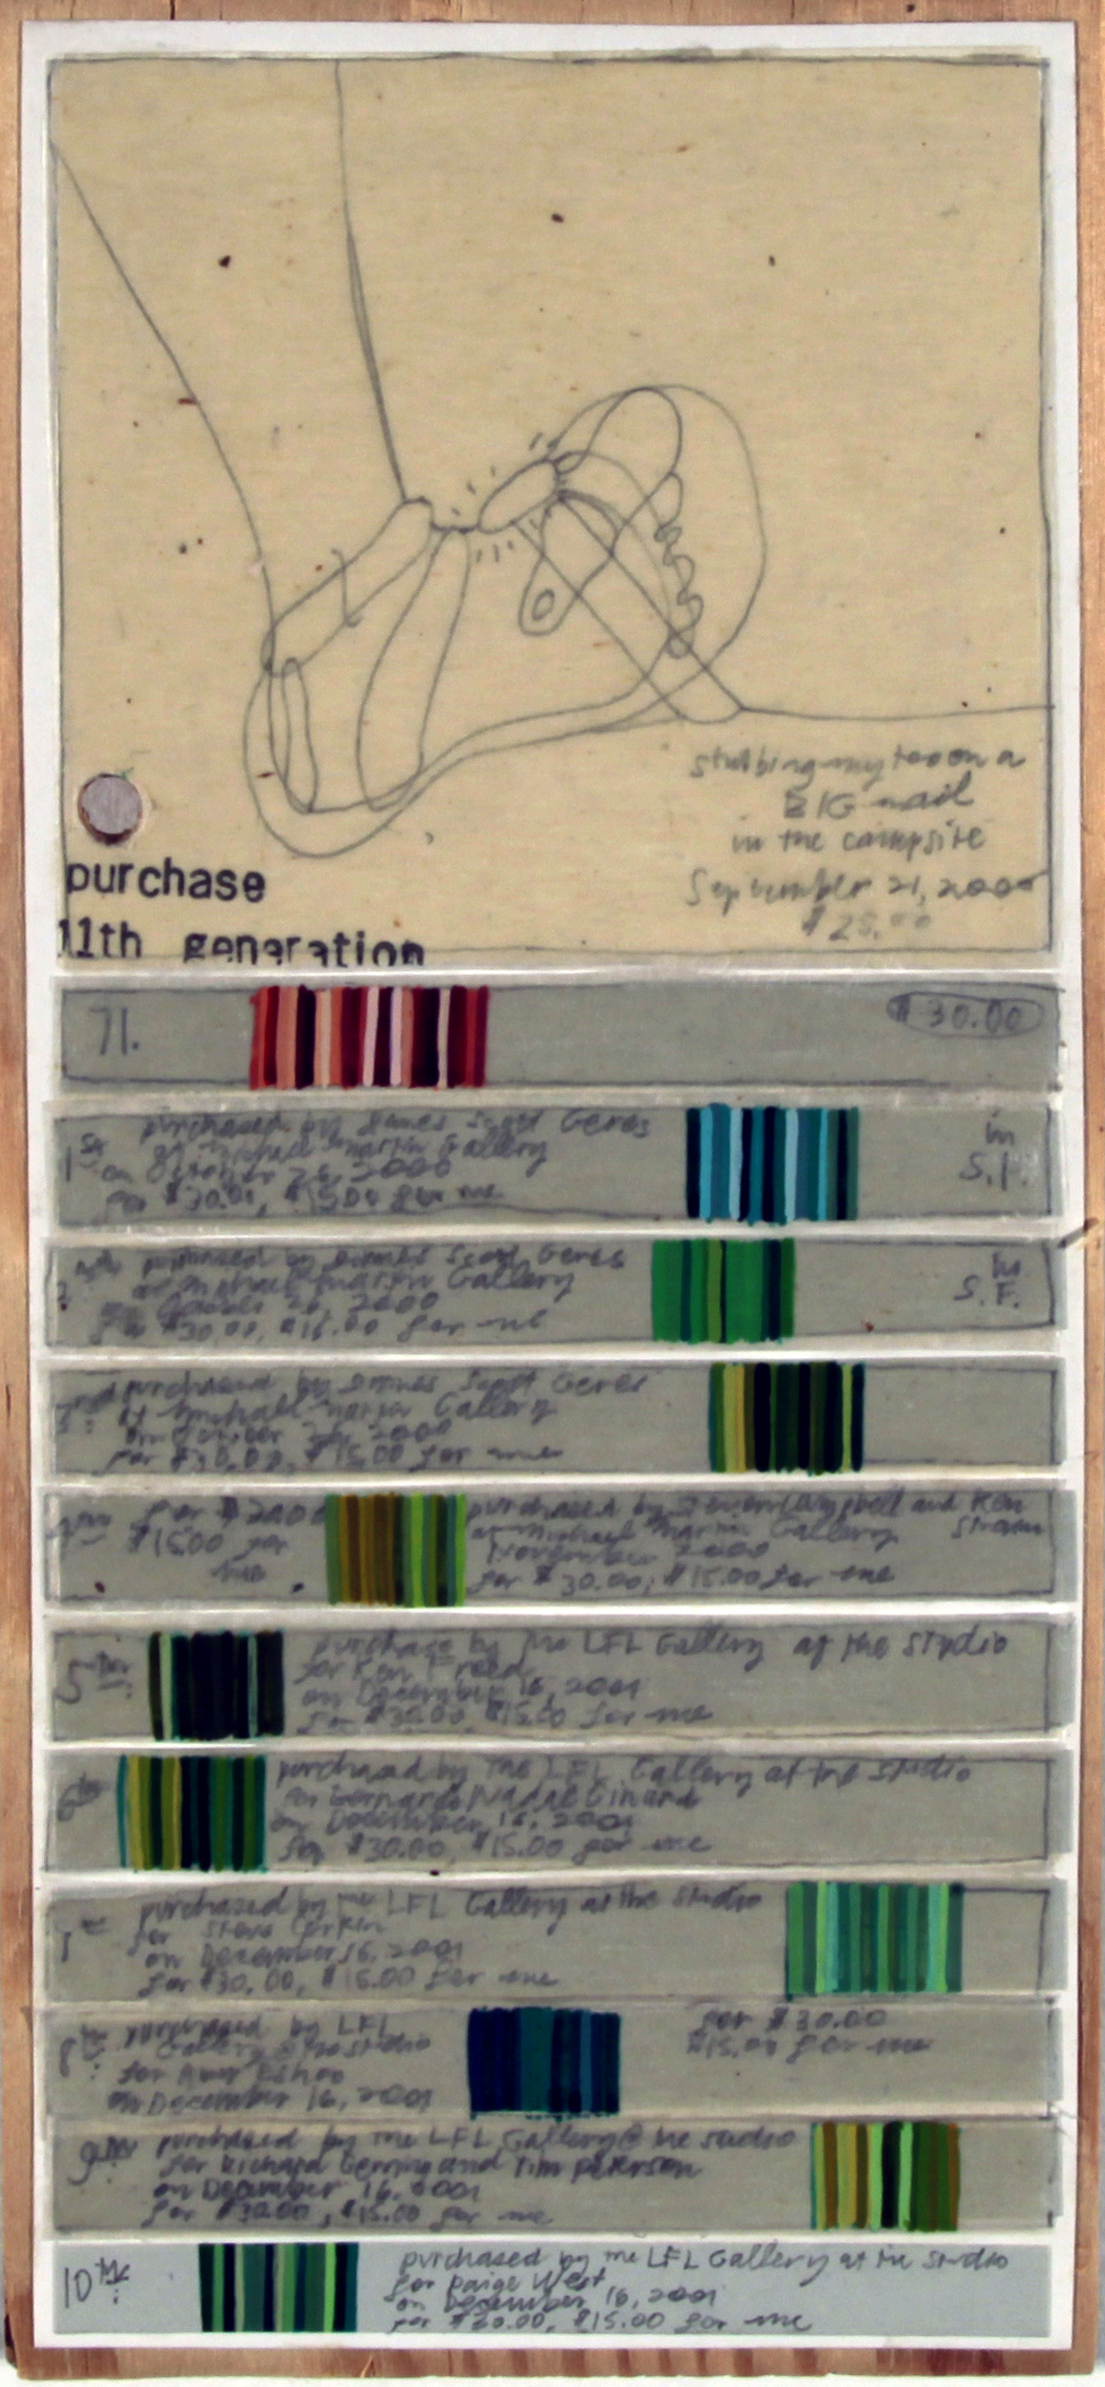 stubbing my toe on a
BIG nail
in the campsite
September 21, 2000
$25.00
purchase
11th generation
71.
$30.00
1st purchased by James Scott Geras
at Michael Martin Gallery
on October 26, 2000
for $30.00, $15.00 for me.
in
S.F.
2nd purchased by James Scott Geras
at Michael Martin Gallery
on October 26, 2000
for $30.00, $15.00 for me
in
S.F.
3rd: purchased by James Scott Geras
at Michael Martin Gallery
on October 26, 2000
for $30.00, $15.00 for me
for
$15.00 for
me
purchased by Campbell and Ken
at Michael Martin Gallery
November 2000
for $30.00, $15.00 for me
5th: purchase by the LFL Gallery at the studio
for Ken Freed
on December 16, 2001
for $30.00, $15.00 for me
6th purchased by the LFL Gallery at the studio
for Bernardo Nadal Ginard
on December 16, 2001
for $30.00, $15.00 for me
purchased by the LFL Gallery at the studio
for Steve
on December 16, 2001
for $30.00, $15.00 for me
8th: purchased by LFL
Gallery @ the studio
for
on December 16, 2001
for $30.00
$15.00 for me
9th purchased by the LFL Gallery @ the studio
for Richard and Tim Peterson
on December 16, 2001
for $30.00, $15.00 for me
10th: purchased by the LFL Gallery at the studio
for Paige West
on December 16, 2001
for $30.00, $15.00 for me